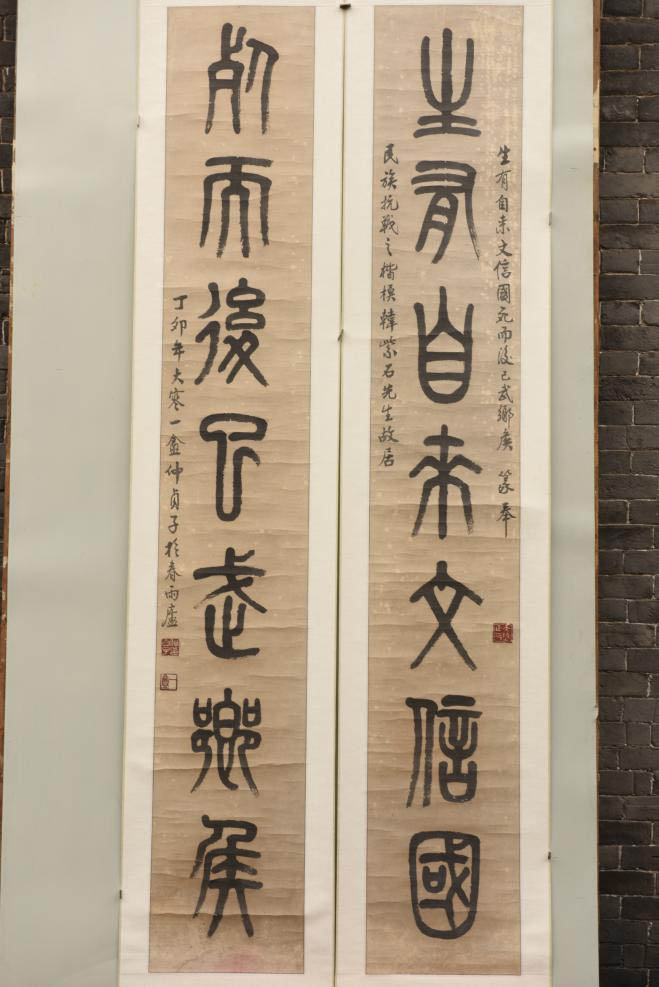 生有自来文信國
生有自来文信國死而後已武鄉侯 篆奉
民族抗戰之楷模韓紫石先生故居
死而後已武鄉侯
丁卯年大寒一盦仲貞子於春雨廬